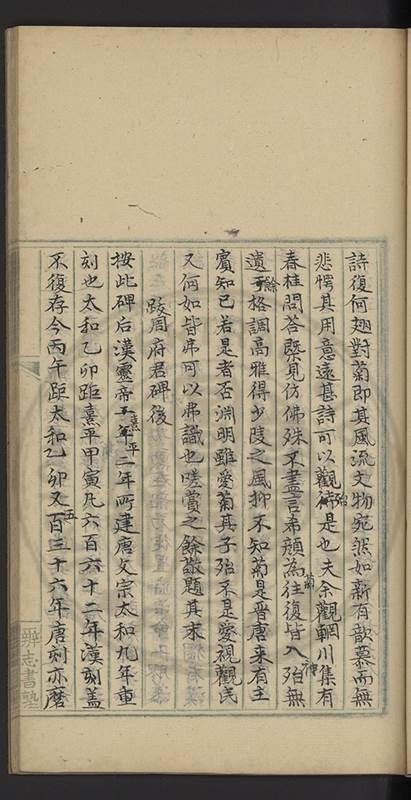 詩復何趣對菊即其風流文物宛然如新有歆慕而無
悲愕其用意遠甚詩可以觀殆是也夫余觀輞川集有
春桂問答槩見仿佛殊不盡言希顔為蘭往復皆入神殆無
遺餘格調高雅得少陵之風抑不知菊是晉唐来有主
賓知已若是者否淵明雖愛菊其子殆不是愛視觀民
又何如皆席可以弗識也嗟賞之餘敬題其末
跋周府君碑後
按此碑后漢靈帝熹平二年所建唐文宗太和九年重
刻也太和乙卯距熹平甲寅凡六百六十二年漢刻盖
不復存今丙午距太和乙卯又五百三十六年唐刻亦磨
辨志書塾